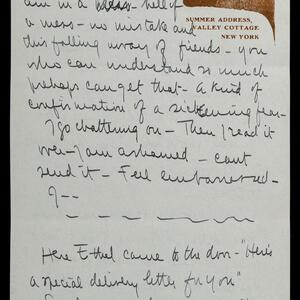 am in a hell of
a mess - no mistake and
SUMMER ADDRESS,
VALLEY COTTAGE
NEW YORK
this falling away of friends - you
who can understand so much
perhaps can get that - A kind of
confirmation of a sickening fear -
I go chattening on - Then I read it
over - I am ashamed - can't
send it - Feel embarrassed -
Here Ethel came to the door - "Here's
a special delivery letter for you"